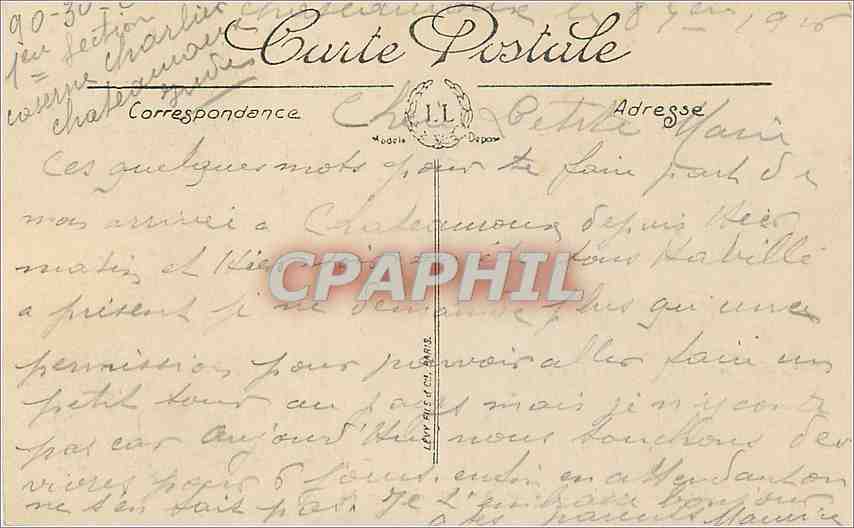 90-30-
1ere Section
caserne Charlier
Chateauroux
Indre
Chateauroux le 8 1916
Carte Postale
Correspondance
LL
Modèle Déposé
Adresse
Chère Petite Marie
Ces quelques mots pour te faire part de
mon arrivée a Chateauroux depuis Hier
matin et Hier tous Habillé
a présent je ne demande plus qu'une
permission pour pouvoir aller faire un
petit tour au pays mais je n'y compte
pas car Aujourd'Hui nous touchons des
vivres pour 6 Jours. enfin en attendant on
ne s'en fait pas. Je t'embrasse bonjour
a tes parents Maurice
LÉVY FILS & Cie, PARIS.
CPAPHIL